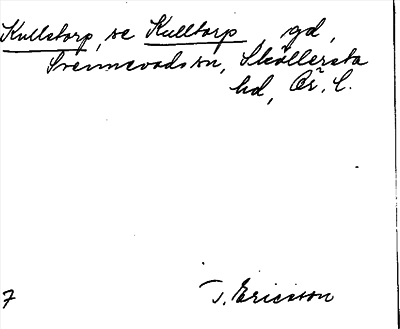 Kullstorp, se Kulltorp, gd,
Svennevads sn, Sköllersta
hd, Ör. l.
7 T. Ericsson